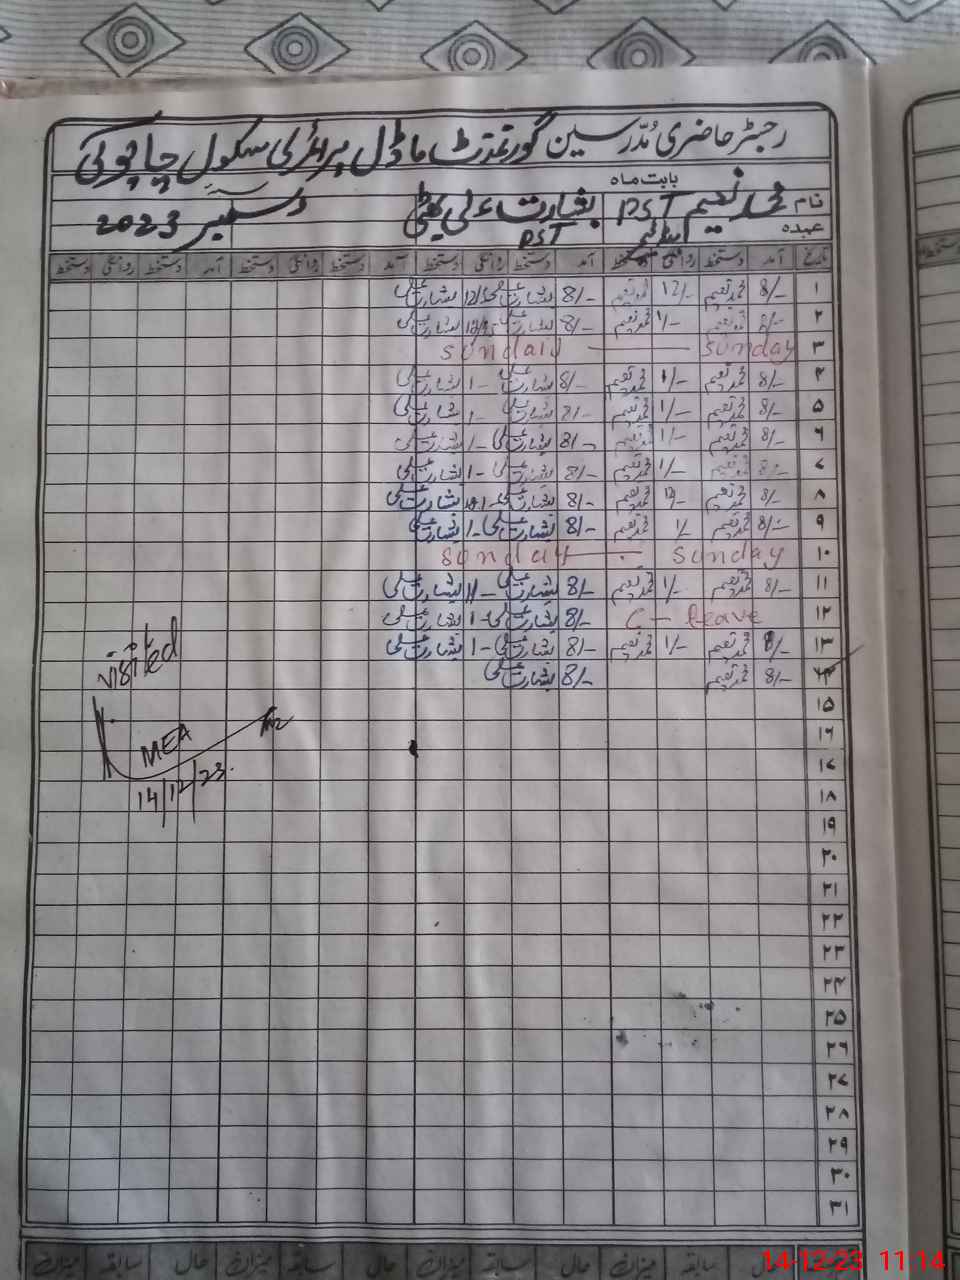 رجسٹر حاضری مدرسین گورنمنٹ ماڈل پرائمری سکول چاپوکی
بابت ماہ
نام محمد نعیم PST بشارت علی بھٹی دسمبر 2023
عہدہ PST
تاریخ آمد دستخط روانگی دستخط آمد دستخط روانگی دستخط آمد دستخط روانگی دستخط آمد دستخط روانگی دستخط
۱ 8/- محمد نعیم 12/- محمد نعیم 8/- بشارت علی بشارت علی
۲ 8/- محمد نعیم 1/- محمد نعیم 8/- بشارت علی بشارت علی
۳ Sunday Sunday
۴ 8/- محمد نعیم 1/- محمد نعیم 8/- بشارت علی 1- بشارت علی
۵ 8/- محمد نعیم 1/- محمد نعیم 8/- بشارت علی 1- بشارت علی
۶ 8/- محمد نعیم 1/- محمد نعیم 8/- بشارت علی 1- بشارت علی
۷ 8/- محمد نعیم 1/- محمد نعیم 8/- بشارت علی 1- بشارت علی
۸ 8/- محمد نعیم 12/- محمد نعیم 8/- بشارت علی بشارت علی
۹ 8/- محمد نعیم 1/- محمد نعیم 8/- بشارت علی 1- بشارت علی
۱۰ Sunday Sunday
۱۱ 8/- محمد نعیم 1/- محمد نعیم 8/- بشارت علی بشارت علی
۱۲ C - leave 8/- بشارت علی 1- بشارت علی
۱۳ 8/- محمد نعیم 1/- محمد نعیم 8/- بشارت علی 1- بشارت علی
۱۴ 8/- محمد نعیم 8/- بشارت علی
visited
MEA
14/12/23.
۱۵
۱۶
۱۷
۱۸
۱۹
۲۰
۲۱
۲۲
۲۳
۲۴
۲۵
۲۶
۲۷
۲۸
۲۹
۳۰
۳۱
حال سابقہ میزان حال سابقہ میزان حال سابقہ میزان حال سابقہ میزان
14-12-23 11:14